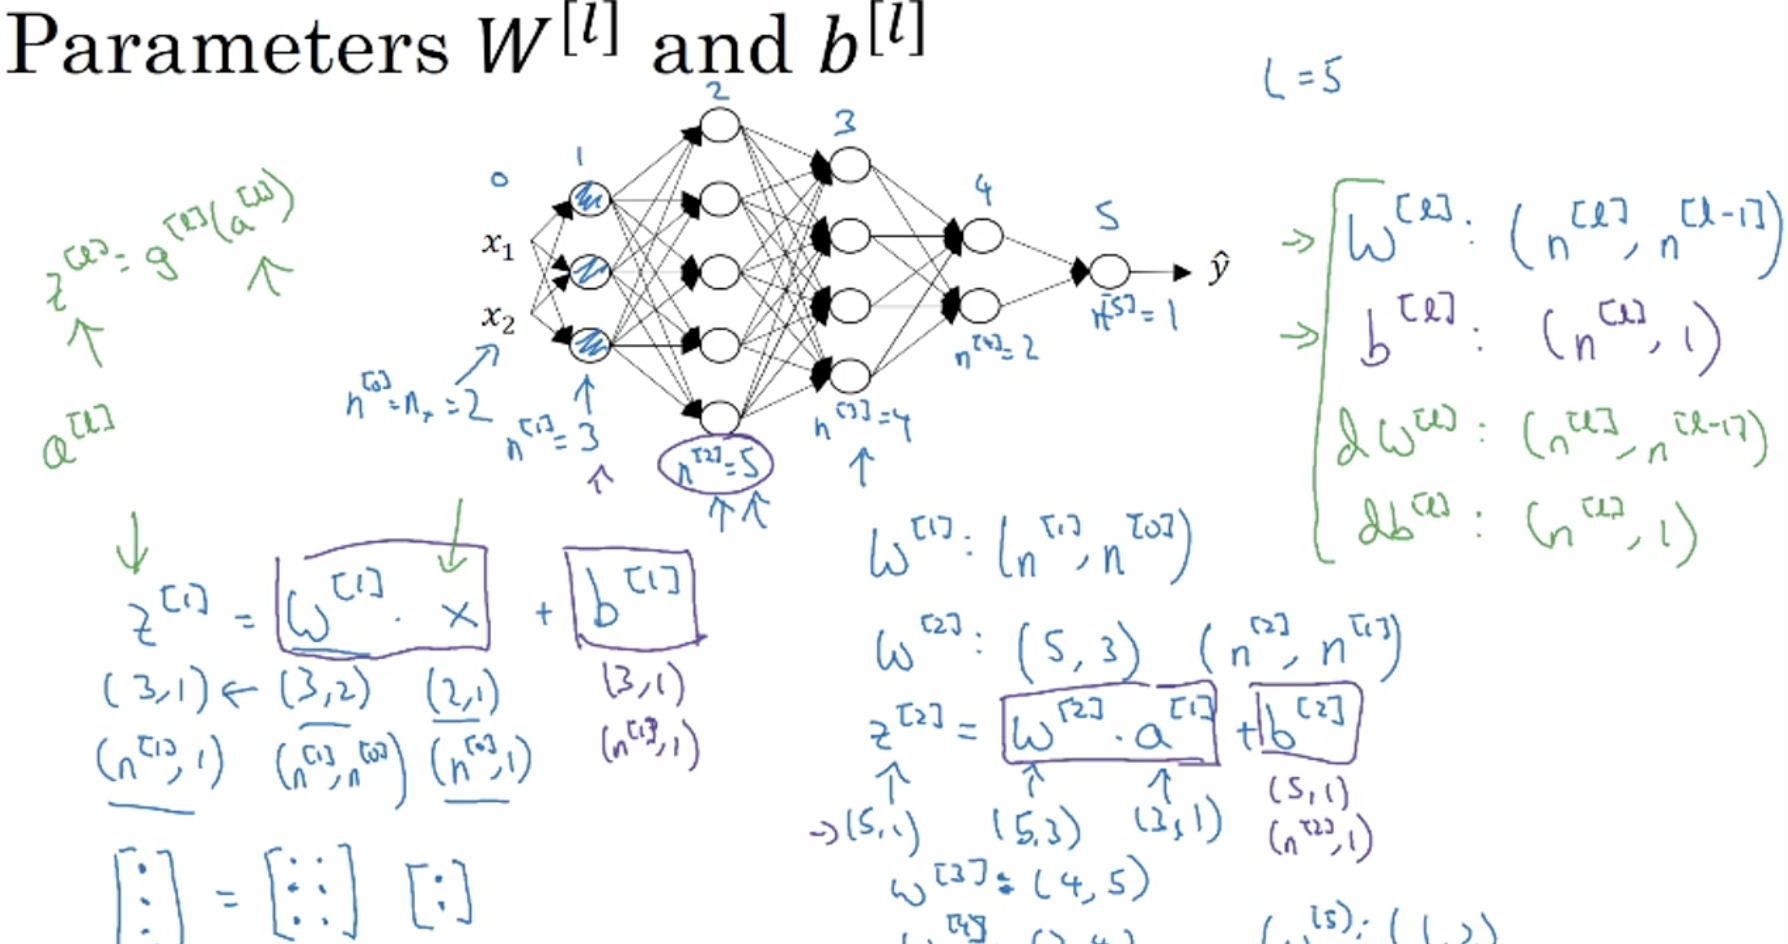 Parameters W^[l] and b^[l]
L = 5
0 1 2 3 4 5
x₁
x₂
ŷ
n^[0] = nₓ = 2
n^[1] = 3
n^[2] = 5
n^[3] = 4
n^[4] = 2
n^[5] = 1
z^[l] = g^[l](a^[l])
a^[l]
W^[l] : (n^[l], n^[l-1])
b^[l] : (n^[l], 1)
dW^[l] : (n^[l], n^[l-1])
db^[l] : (n^[l], 1)
z^[1] = W^[1] · x + b^[1]
(3,1) ← (3,2) (2,1) (3,1)
(n^[1], 1) (n^[1], n^[0]) (n^[0], 1) (n^[1], 1)
W^[1] : (n^[1], n^[0])
W^[2] : (5, 3) (n^[2], n^[1])
z^[2] = W^[2] · a^[1] + b^[2]
→ (5,1) (5,3) (3,1) (5,1)
(n^[2], 1)
W^[3] : (4, 5)
W^[4] : (2, 4) W^[5] : (1, 2)